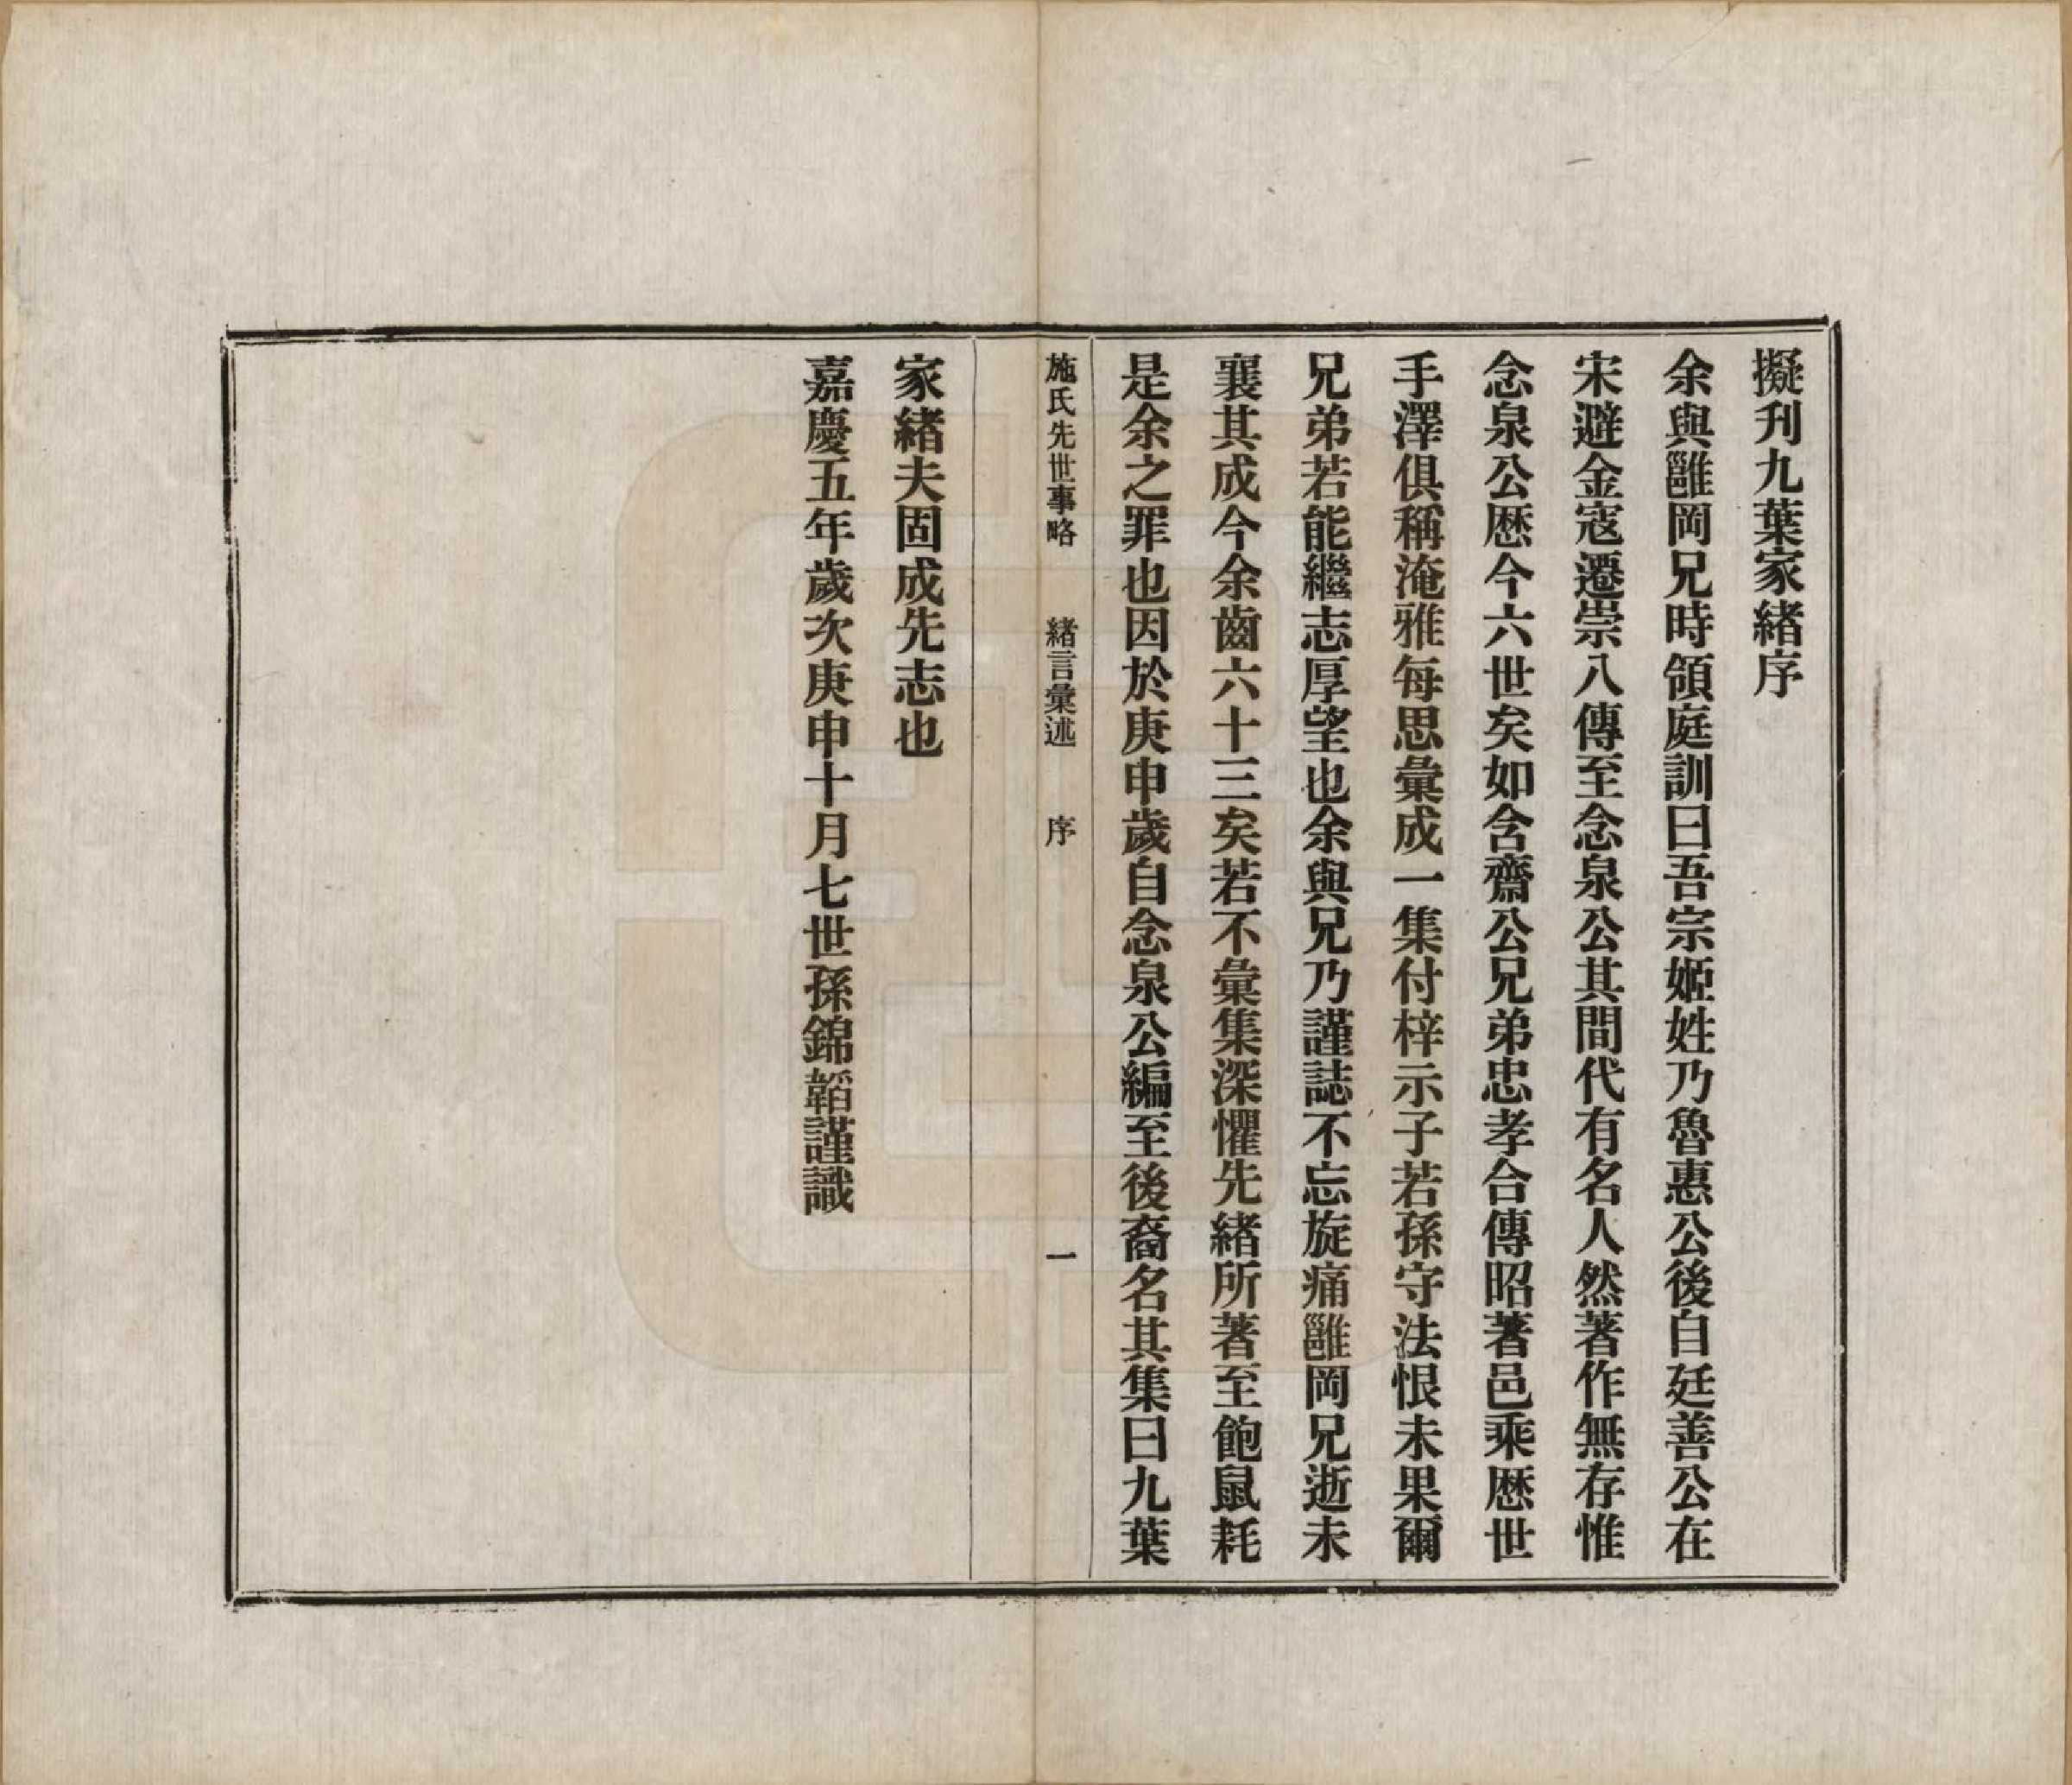 擬刋九葉家緒序
余與雝岡兄時領庭訓曰吾宗姬姓乃魯惠公後自廷善公在
宋避金寇遷崇八傳至念泉公其間代有名人然著作無存惟
念泉公歷今六世矣如含齋公兄弟忠孝合傳昭著邑乘歷世
手澤俱稱淹雅每思彙成一集付梓示子若孫守法恨未果爾
兄弟若能繼志厚望也余與兄乃謹誌不忘旋痛雝岡兄逝未
襄其成今余齒六十三矣若不彙集深懼先緒所著至飽鼠耗
是余之罪也因於庚申歲自念泉公編至後裔名其集曰九葉
施氏先世事略 緒言彙述 序 一
家緒夫固成先志也
嘉慶五年歲次庚申十月七世孫錦韜謹識